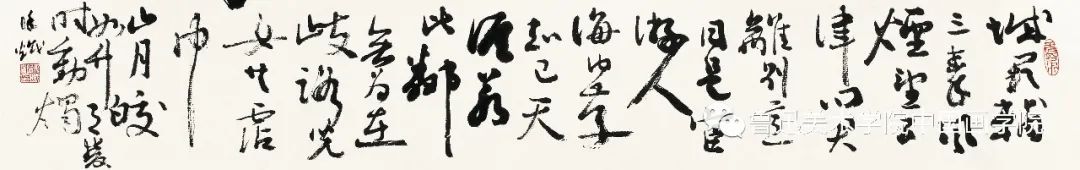 城闕輔
三秦風
煙望五
津與君
離别意
同是宦
游人
海内存
知己天
涯若
比鄰
無為在
歧路兒
女共霑
巾
山月皎
鲁迅美术学院中国画学院